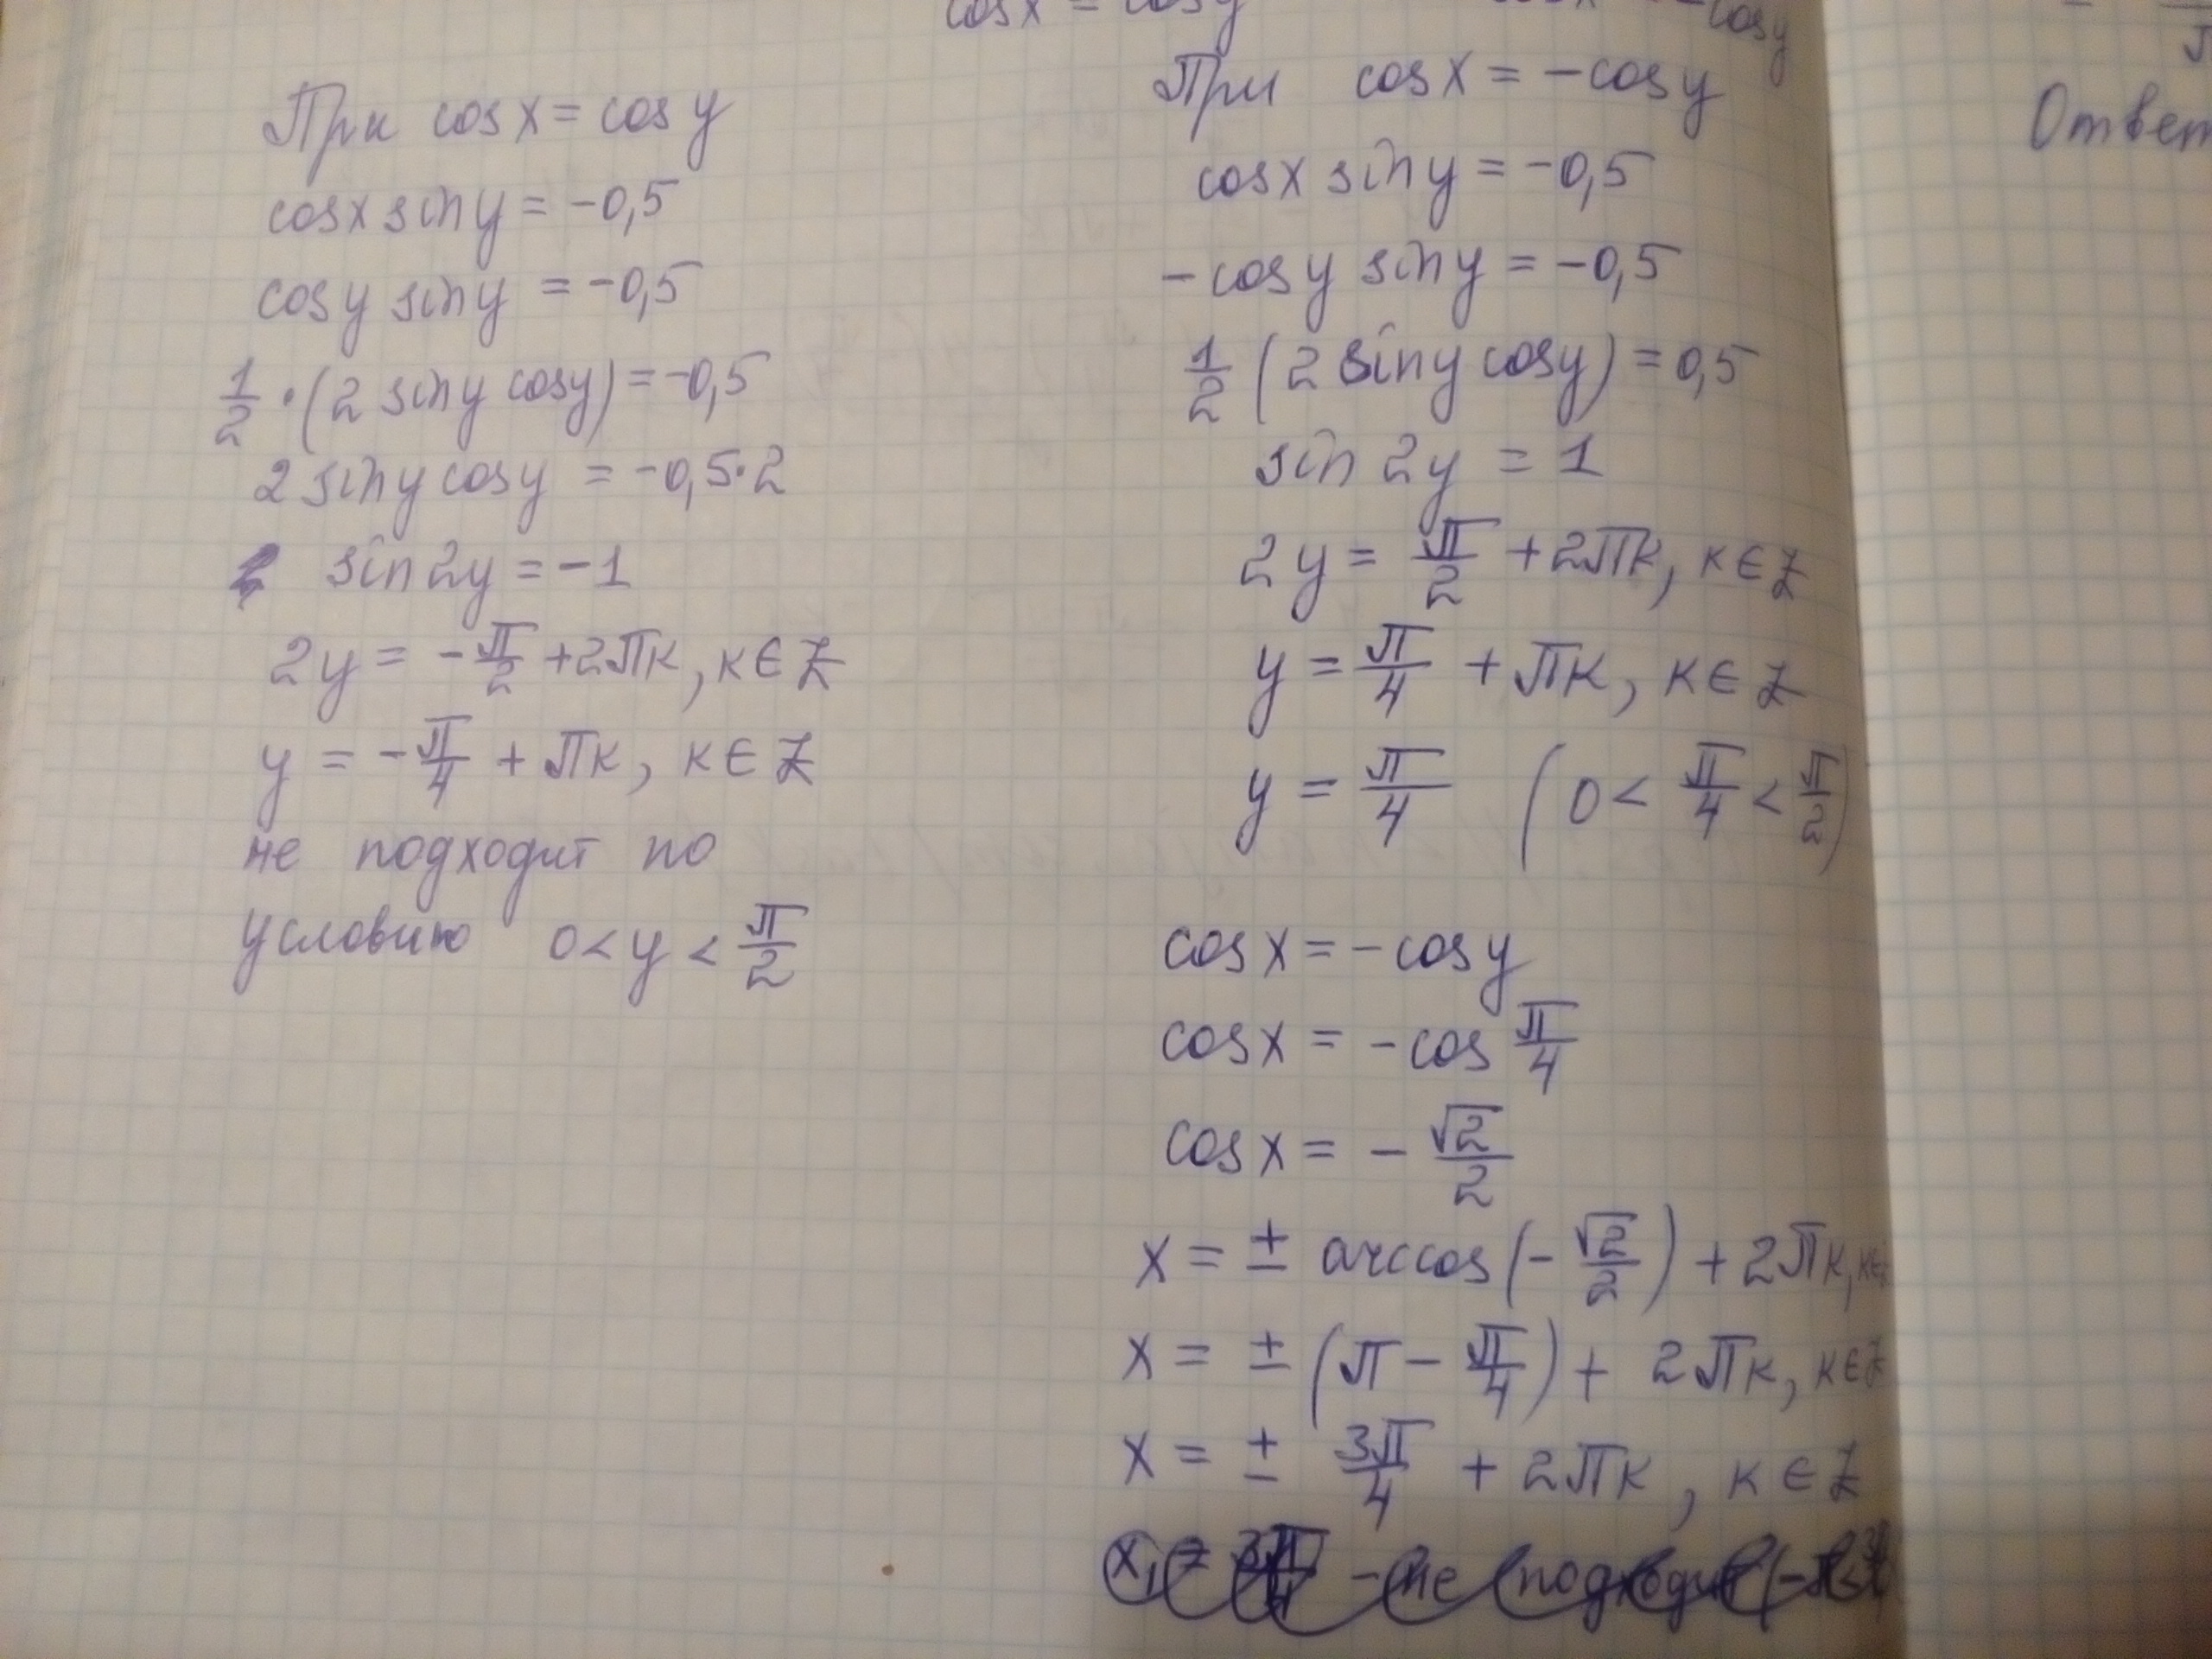 cosx = cosy
-cosy
При cosx = cosy
cosx siny = -0,5
cosy siny = -0,5
1/2 · (2 siny cosy) = -0,5
2 siny cosy = -0,5·2
sin2y = -1
2y = -π/2 + 2πк, к ∈ Z
y = -π/4 + πк, к ∈ Z
не подходит по
условию 0 < y < π/2
При cosx = -cosy
cosx siny = -0,5
-cosy siny = -0,5
1/2 (2 siny cosy) = 0,5
sin 2y = 1
2y = π/2 + 2πк, к ∈ Z
y = π/4 + πк, к ∈ Z
y = π/4 (0 < π/4 < π/2)
cosx = -cosy
cosx = -cos π/4
cosx = - √2/2
x = ± arccos(- √2/2) + 2πк, к∈
x = ± (π - π/4) + 2πк, к ∈ Z
x = ± 3π/4 + 2πк, к ∈ Z
x₁ = 3π/4 - не подходит
Ответ